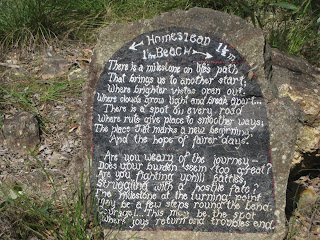 ← Homestead 1½m
1½m Beach →
There is a milestone on life's path
That brings us to another start;
Where brighter vistas open out,
Where clouds grow light and break apart...
There is a spot on every road
Where ruts give place to smoother ways;
The place that marks a new beginning,
And the hope of fairer days.
Are you weary of the journey –
Does your burden seem too great?
Are you fighting uphill battles,
Struggling with a hostile fate?
The milestone at the turning point
May be a few steps round the bend.
Courage!... This may be the spot
Where joys return and troubles end.